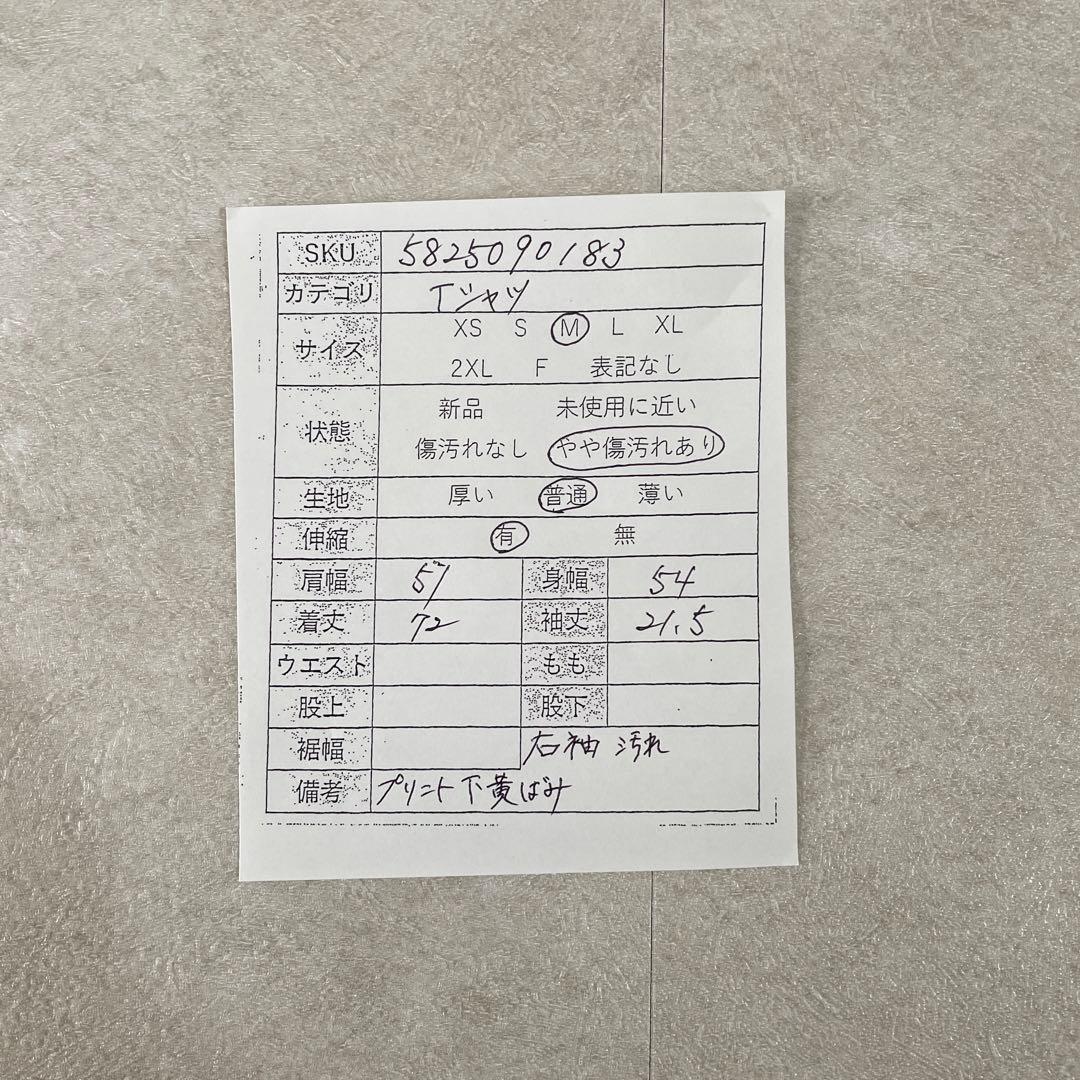 SKU 5825090183
カテゴリ Tシャツ
サイズ XS S M L XL
2XL F 表記なし
状態 新品 未使用に近い
傷汚れなし やや傷汚れあり
生地 厚い 普通 薄い
伸縮 有 無
肩幅 51 身幅 54
着丈 72 袖丈 21.5
ウエスト もも
股上 股下
裾幅 右袖 汚れ
備考 プリント下黄ばみ